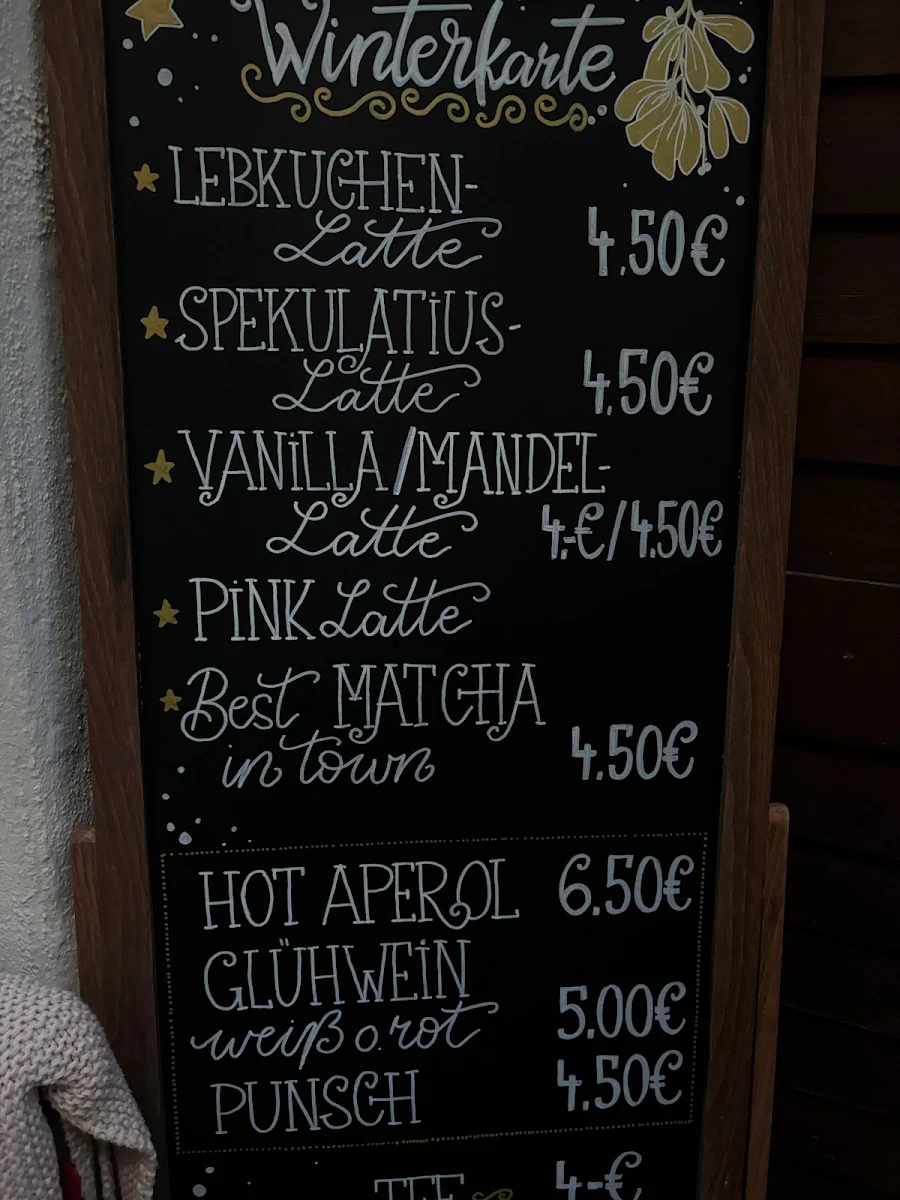 Winterkarte
LEBKUCHEN-
Latte 4.50€
SPEKULATIUS-
Latte 4.50€
VANILLA/MANDEL-
Latte 4.-€/4.50€
PINK Latte
Best MATCHA
in town 4.50€
HOT APEROL 6.50€
GLÜHWEIN
weiß o. rot 5.00€
PUNSCH 4.50€
TEE 4.-€